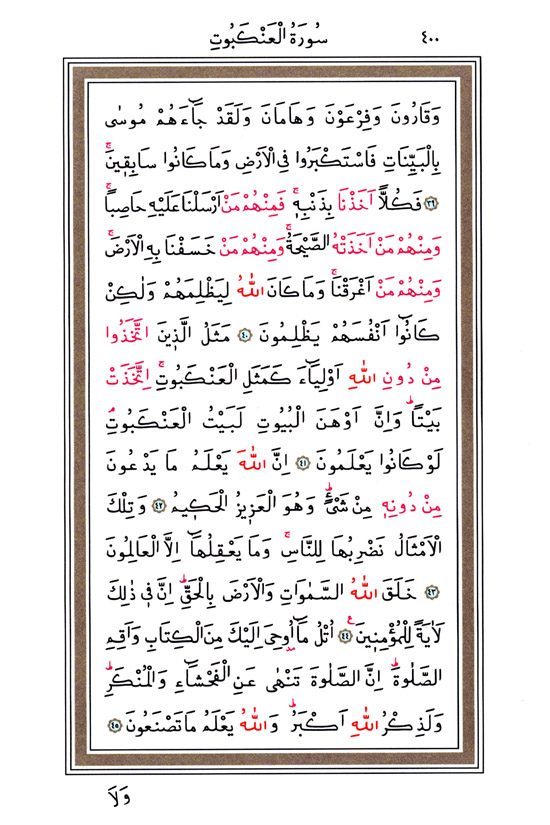 سُورَةُ الْعَنْكَبُوتِ ٤٠٠
وَقَارُونَ وَفِرْعَوْنَ وَهَامَانَ وَلَقَدْ جَٓاءَهُمْ مُوسٰى
بِالْبَيِّنَاتِ فَاسْتَكْبَرُوا فِي الْاَرْضِ وَمَا كَانُوا سَابِقِينَۚ
﴿٣٩﴾ فَكُلًّا اَخَذْنَا بِذَنْبِه۪ۚ فَمِنْهُمْ مَنْ اَرْسَلْنَا عَلَيْهِ حَاصِبًاۚ
وَمِنْهُمْ مَنْ اَخَذَتْهُ الصَّيْحَةُۚ وَمِنْهُمْ مَنْ خَسَفْنَا بِهِ الْاَرْضَۚ
وَمِنْهُمْ مَنْ اَغْرَقْنَاۚ وَمَا كَانَ اللّٰهُ لِيَظْلِمَهُمْ وَلٰكِنْ
كَانُٓوا اَنْفُسَهُمْ يَظْلِمُونَ ﴿٤٠﴾ مَثَلُ الَّذ۪ينَ اتَّخَذُوا
مِنْ دُونِ اللّٰهِ اَوْلِيَٓاءَ كَمَثَلِ الْعَنْكَبُوتِۚ اِتَّخَذَتْ
بَيْتًاۜ وَاِنَّ اَوْهَنَ الْبُيُوتِ لَبَيْتُ الْعَنْكَبُوتِۢ
لَوْ كَانُوا يَعْلَمُونَ ﴿٤١﴾ اِنَّ اللّٰهَ يَعْلَمُ مَا يَدْعُونَ
مِنْ دُونِه۪ مِنْ شَيْءٍۜ وَهُوَ الْعَز۪يزُ الْحَك۪يمُ ﴿٤٢﴾ وَتِلْكَ
الْاَمْثَالُ نَضْرِبُهَا لِلنَّاسِۚ وَمَا يَعْقِلُهَٓا اِلَّا الْعَالِمُونَ
﴿٤٣﴾ خَلَقَ اللّٰهُ السَّمٰوَاتِ وَالْاَرْضَ بِالْحَقِّۜ اِنَّ ف۪ي ذٰلِكَ
لَاٰيَةً لِلْمُؤْمِن۪ينَ۟ ﴿٤٤﴾ اُتْلُ مَٓا اُو۫حِيَ اِلَيْكَ مِنَ الْكِتَابِ وَاَقِمِ
الصَّلٰوةَۜ اِنَّ الصَّلٰوةَ تَنْهٰى عَنِ الْفَحْشَٓاءِ وَالْمُنْكَرِۜ
وَلَذِكْرُ اللّٰهِ اَكْبَرُۜ وَاللّٰهُ يَعْلَمُ مَا تَصْنَعُونَ ﴿٤٥﴾
وَلَا